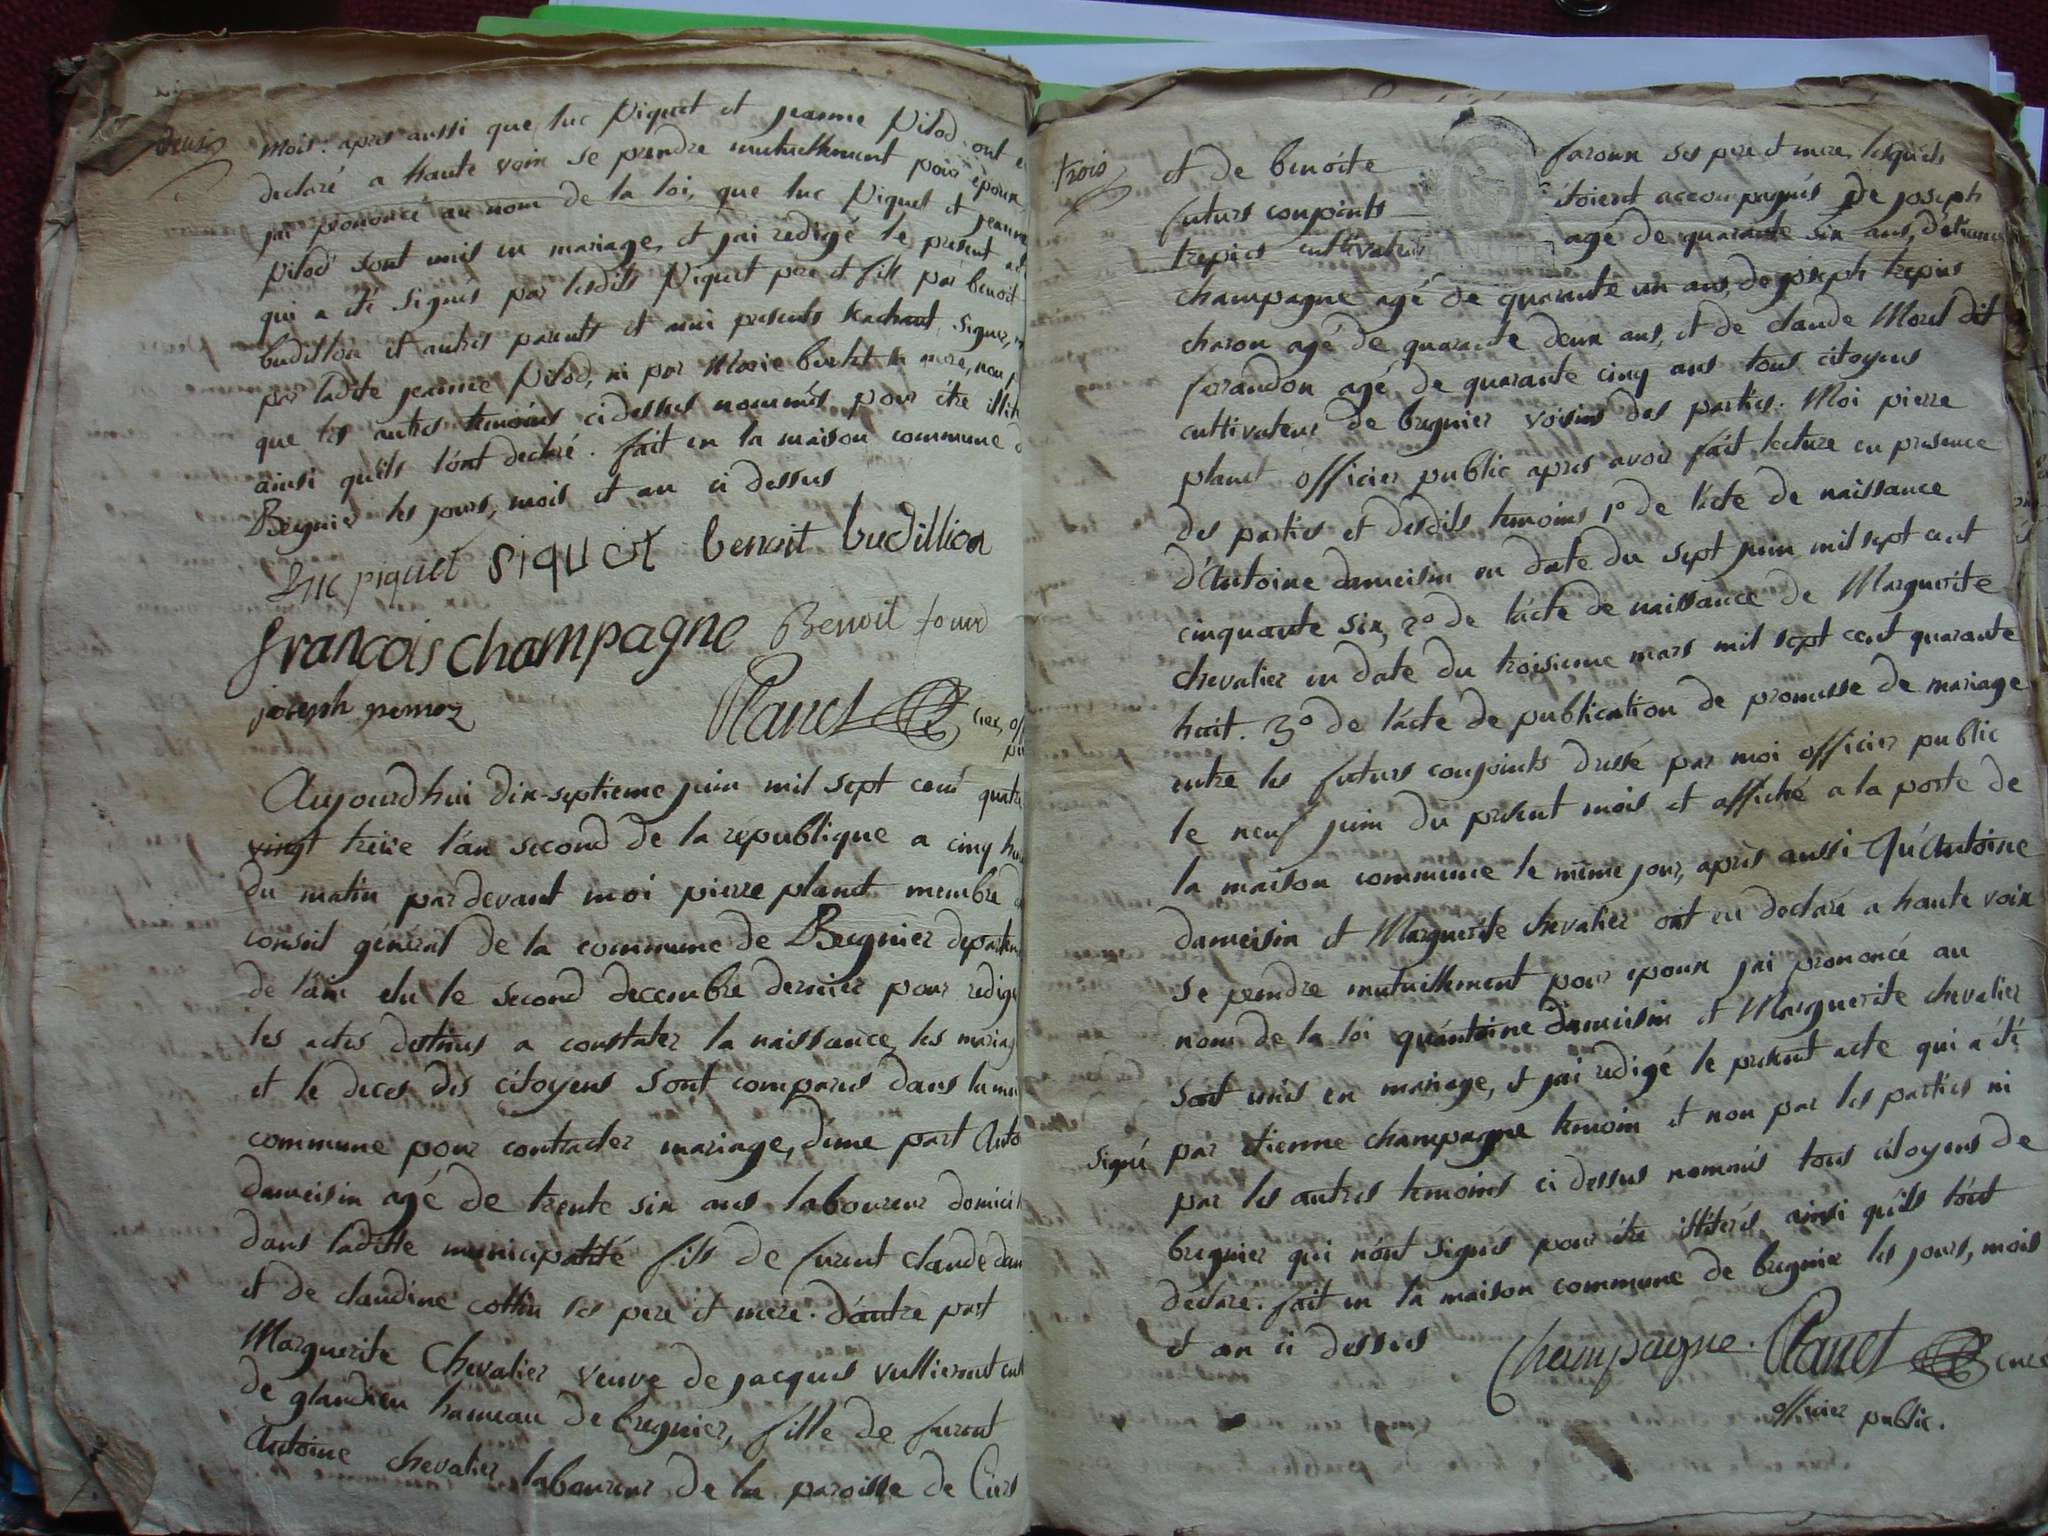 deux
mois: apres aussi que luc Piquet et jeanne Pilod ont
declaré a haute voix se prendre mutuellement pour epoux
jai prononcé au nom de la loi, que luc Piquet et jeanne
Pilod sont unis en mariage, et jai redigé le present
qui a été signés par lesdits Piquet pere et fils par benoit
budillon et autres parents et amis presents sachant signer,
par ladite jeanne Pilod, ni par Marie berlet sa mere, non
que les autres temoins ci dessus nommés pour être
ainsi quils l'ont declaré. fait en la maison commune
Bregnier les jours, mois et an ci dessus
Luc piquet siquet benoit budillion
françois champagne Benoit
joseph
Planet
Aujourdhui dix-septieme juin mil sept cent
vingt treize l'an second de la republique a cinq
du matin par devant moi pierre planet membre
conseil général de la commune de Bregnier
de l'ain elu le second decembre dernier pour
les actes destinés a constater la naissance, les
et le deces des citoyens sont comparus dans
commune pour contracter mariage, d'une part
dameisin agé de trente six ans laboureur
dans ladite municipalité fils de furent claude
et de claudine cottin ses pere et mere. d'autre part
Marguerite Chevalier veuve de jacques vullierout
de glandieu hameau de bregnier, fille de furent
Antoine chevalier laboureur de la paroisse de
trois
et de benoite faroux ses pere et mere, lesquels
futurs conjoints étoient accompagnés de joseph
trepier cultivateur agé de quarante six ans, d'étienne
champagne agé de quarante un ans, de joseph trepier
charon agé de quarante deux ans, et de claude Morel dit
farandon agé de quarante cinq ans tous citoyens
cultivateurs de bregnier voisins des parties. Moi pierre
planet officier public apres avoir fait lecture en presence
des parties et desdits temoins 1º de l'acte de naissance
d'Antoine dameisin en date du sept juin mil sept cent
cinquante six, 2º de l'acte de naissance de Marguerite
chevalier en date du troisieme mars mil sept cent quarante
huit. 3º de l'acte de publication de promesse de mariage
entre les futurs conjoints dressé par moi officier public
le neuf juin du present mois et affiché a la porte de
la maison commune le même jour, après aussi Qu'Antoine
dameisin et Marguerite chevalier ont eu declaré a haute voix
se prendre mutuellement pour epoux jai prononcé au
nom de la loi qu'antoine dameisin et Marguerite chevalier
sont unis en mariage, et jai redigé le present acte qui a été
signé par étienne champagne temoin et non par les parties ni
par les autres temoins ci dessus nommés tous citoyens de
bregnier qui n'ont signés pour être illiterés ainsi quils l'ont
déclaré. fait en la maison commune de bregnier les jours, mois
et an ci dessus Champagne. Planet curé
officier public.